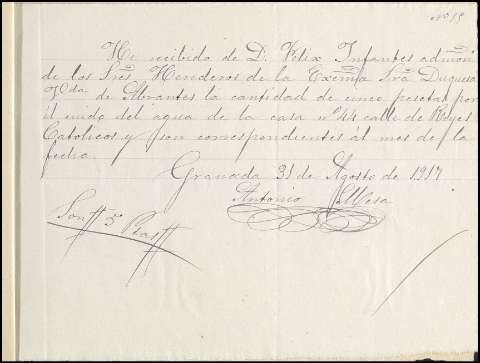 Nº 18
He recibido de D. Felix Infantes admon
de los Sres. Herederos de la Excma Sra Duquesa
Vda de Abrantes la cantidad de cinco pesetas por
el cuido del agua de la casa nº 44 calle de Reyes
Catolicos y son correspondientes al mes de la
fecha.
Granada 31 de Agosto de 1917
Antonio Mesa
Son 5 Ptas